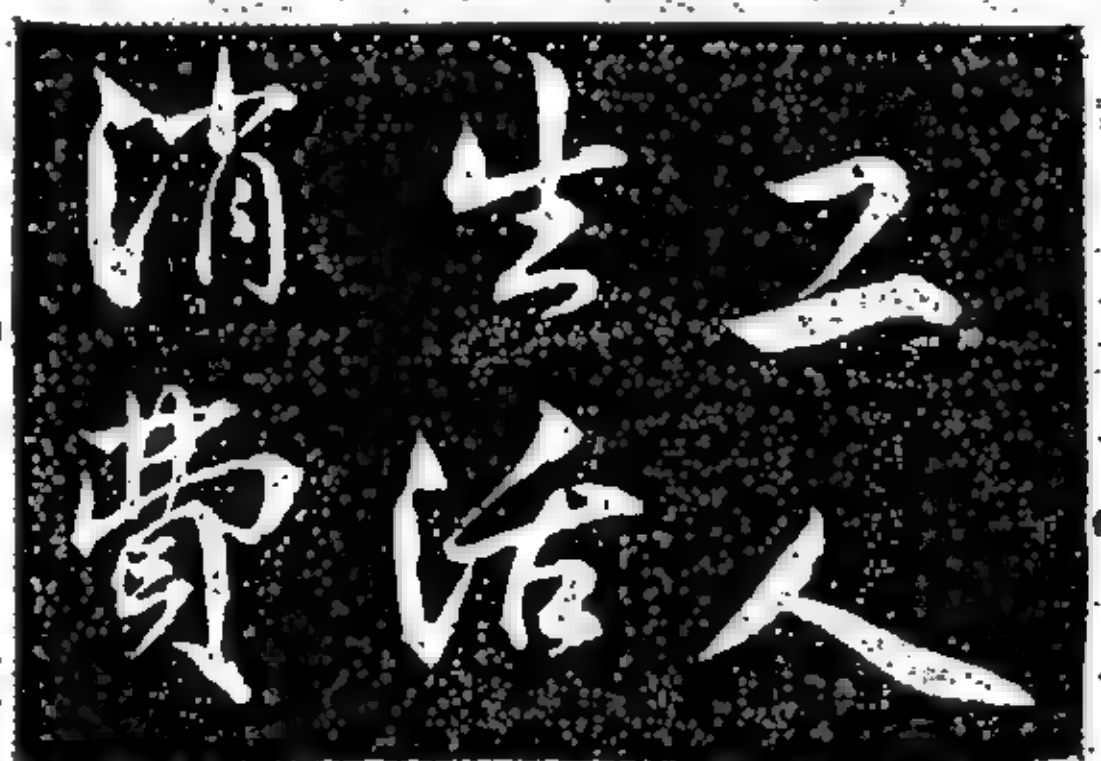 工人
生活
消費